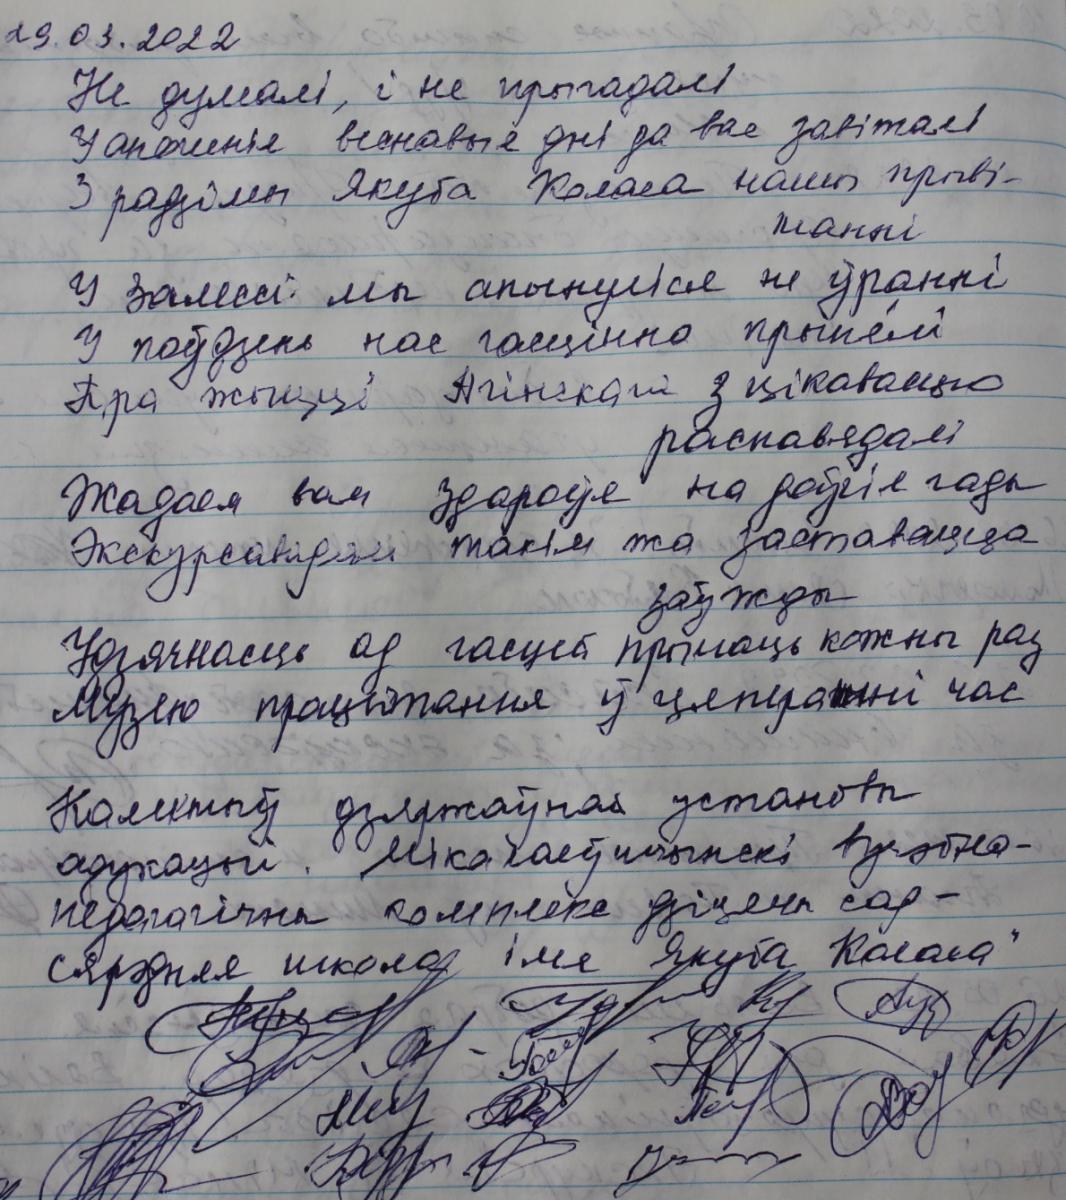 29.03.2022
Не думалі, і не прыгадалі
У апошнія веснавыя дні да вас завіталі
З радзімы Якуба Коласа нашы прыві-
танні
У Залессі мы апынуліся не ўранні
У поўдзень нас гасцінна прынялі
Пра жыццё Агінскага з цікавасцю
распавядалі
Жадаем вам здароўя на доўгія гады
Экскурсаводам такім жа заставацца
заўжды
Удзячнасць ад гасцей прымаць кожны раз
Музею працвітання ў цяперашні час
Калектыў дзяржаўнай установы
адукацыі. Мікалаеўшчынскі вучэбна-
педагагічны комплекс дзіцячы сад-
сярэдняя школа імя Якуба Коласа"